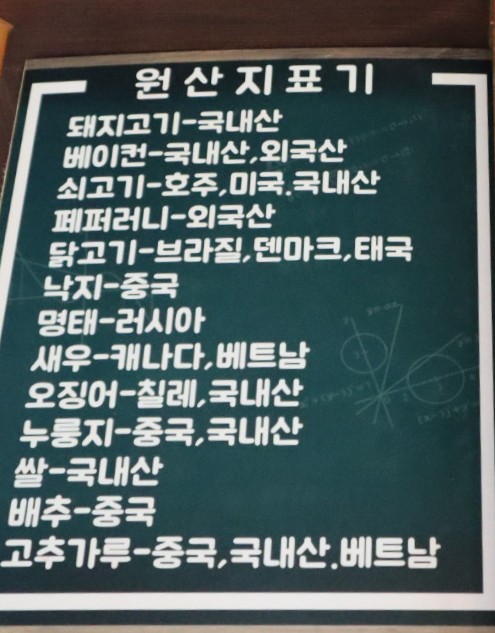 원산지표기
돼지고기-국내산
베이컨-국내산,외국산
쇠고기-호주,미국.국내산
페퍼러니-외국산
닭고기-브라질,덴마크,태국
낙지-중국
명태-러시아
새우-캐나다,베트남
오징어-칠레,국내산
누룽지-중국,국내산
쌀-국내산
배추-중국
고추가루-중국,국내산.베트남